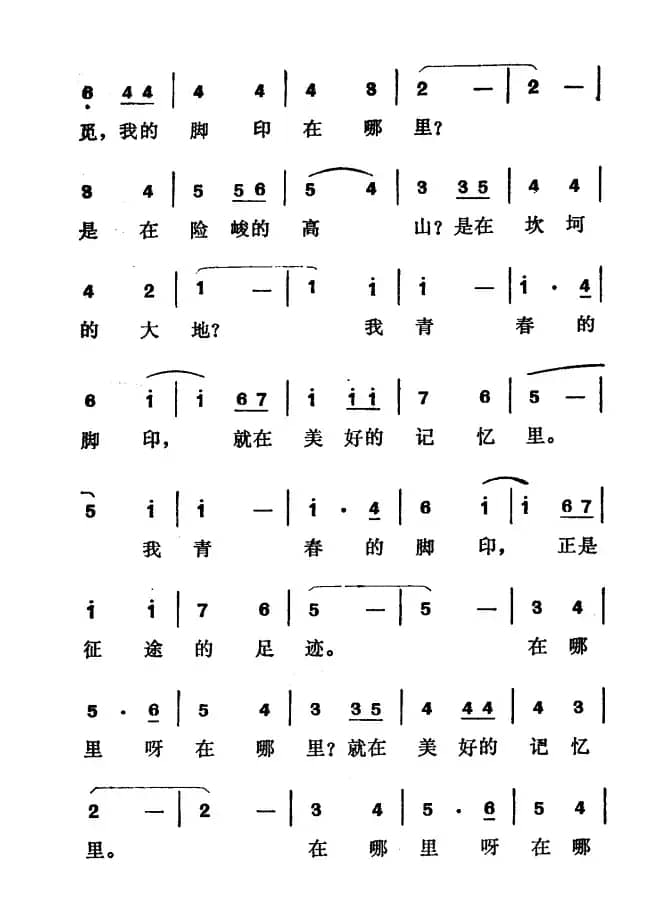 6 4 4 | 4 4 | 4 3 | 2 — | 2 — |
觅，我的 脚 印 在 哪 里？
3 4 | 5 5 6 | 5 4 | 3 3 5 | 4 4 |
是 在 险 峻的 高 山？是在 坎 坷
4 2 | 1 — | 1 i | i — | i · 4 |
的 大 地？ 我 青 春 的
6 i | i 6 7 | i i i | 7 6 | 5 — |
脚 印， 就在 美 好的 记 忆 里。
5 i | i — | i · 4 | 6 i | i 6 7 |
我 青 春 的 脚 印， 正是
i i | 7 6 | 5 — | 5 — | 3 4 |
征 途 的 足 迹。 在 哪
5 · 6 | 5 4 | 3 3 5 | 4 4 4 | 4 3 |
里 呀 在 哪 里？就在 美 好的 记 忆
2 — | 2 — | 3 4 | 5 · 6 | 5 4 |
里。 在 哪 里 呀 在 哪